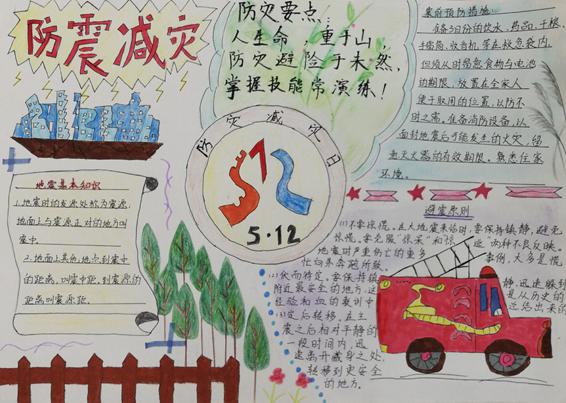 防震减灾
防灾要点：
人生命，重于山，
防灾避险于未然，
掌握技能常演练！
震前预防措施：
备3日份的饮水、药品、干粮、
手电筒、收音机、装在救急袋内，
但须从时留意食物与电池
的期限，放置在全家人
便于取用的位置，以防不
时之需，准备消防设备，以
面封地震后可能发生的火灾，留
意灭火器的有效期限。熟悉住家
环境。
防灾减灾日
5·12
地震基本知识
1.地震时的发源处称为震源，
地面上与震源正对的地方叫
震中。
2.地面上其他地点到震中
的距离，叫震中距，到震源的
距离叫震源距。
避震原则
(1)不要惊慌。在大地震来临时，要保持镇静，避免
惊慌。要克服"惊呆"和"惊逃"两种不良反映。
地震时严重伤亡的重多事例，大多是慌
忙向外奔跑所致
(2)伏而待定。要保持镇静，迅速躲到
附近最安全的地方，这是从历史的
经验和血的教训中总结出来的
(3)定后转移。在主
震之后相对平静的
一段时间内，迅
速离开藏身之处，
转移到更安全
的地方。